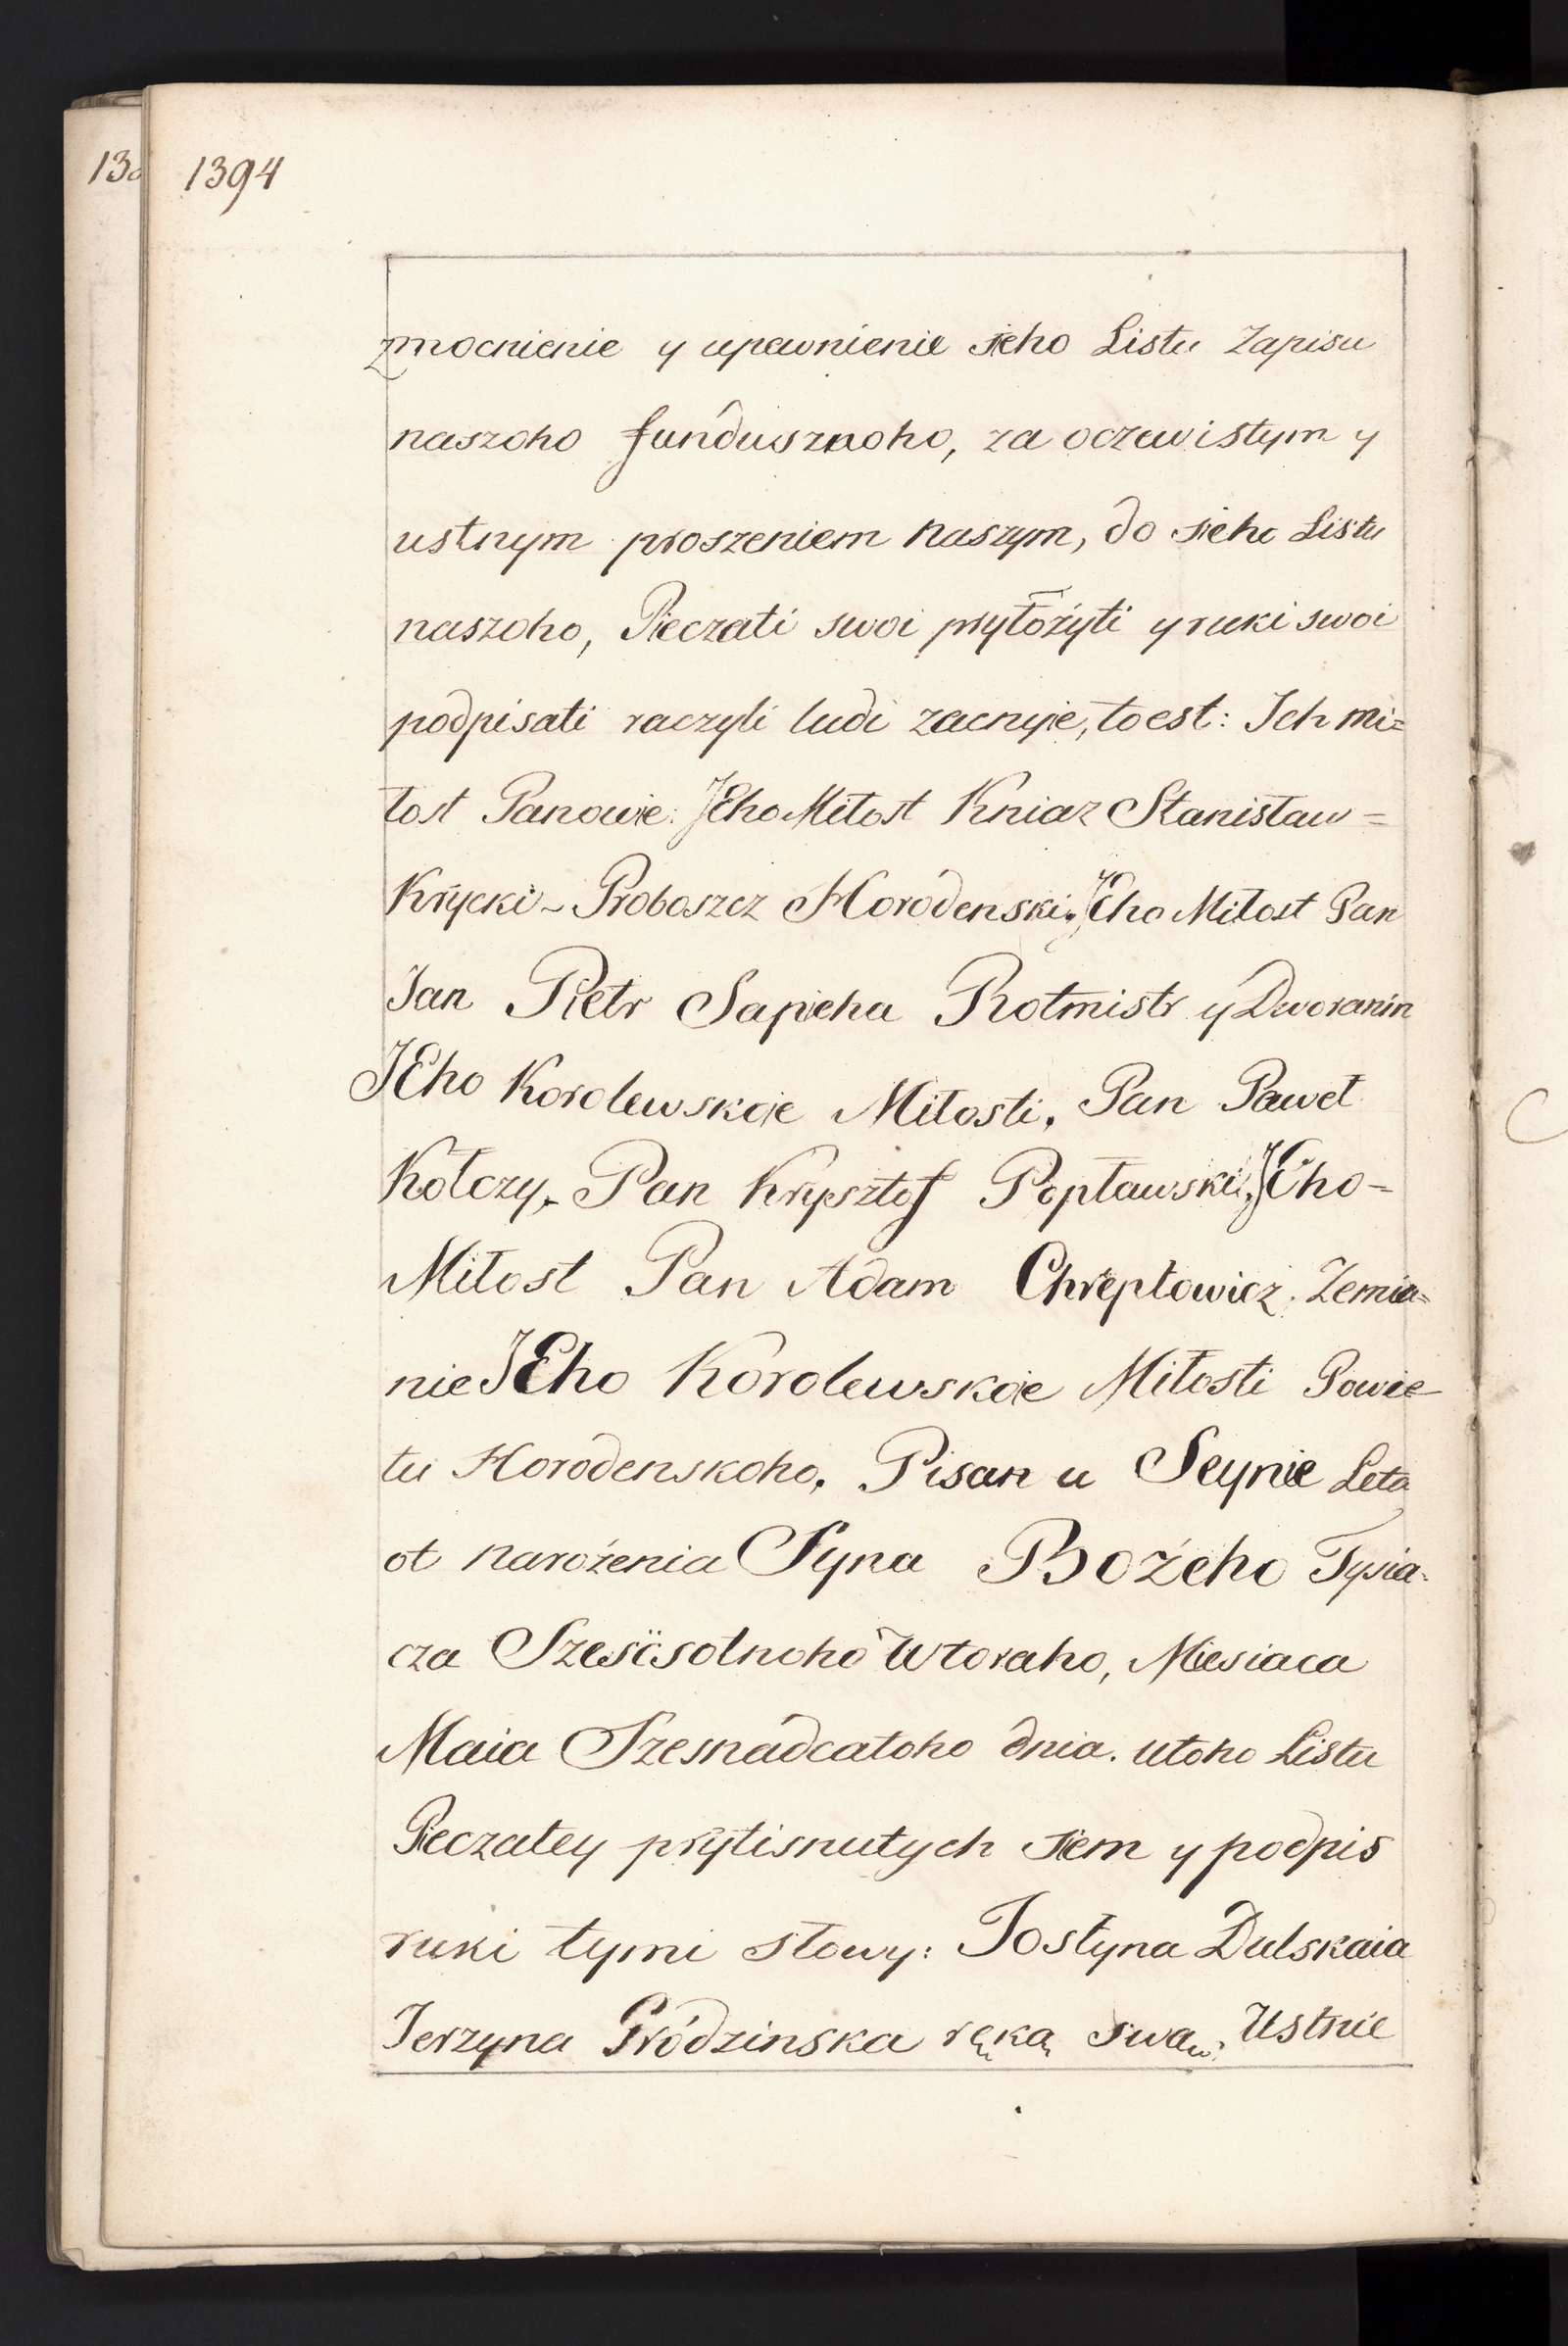 13
1394
zmocnienie y upewnienie sieho Listu Zapisu
naszoho fundusznoho, za oczewistym y
ustnym proszeniem naszym, do sieho Listu
naszoho, Pieczati swoi pryłożyti y ruki swoi
podpisati raczyli ludi zacnyie, toest: Ich mi=
łost Panowie: JEho Miłost Kniaz Stanisław=
Krycki - Proboszcz Horodenski. JEho Miłost Pan
Jan Pietr Sapieha Rotmistr y Dworanin
JEho Korolewskoie Miłosti. Pan Paweł
Kołczy. Pan Krysztof Popławski. JEho-
Miłost Pan Adam Chreptowicz. Zemia=
nie JEho Korolewskoie Miłosti Powie
tu Horodenskoho. Pisan u Seynie Leta
ot narożenia Syna Bożeho Tysia-
cza Szesćsotnoho Wtoraho, Miesiaca
Maia Szesnadcatoho dnia. utoho Listu
Pieczatey prytisnutych siem y podpis
ruki tymi słowy: Jostyna Dulskaia
Jerzyna Gródzinska ręką swą. Ustnie